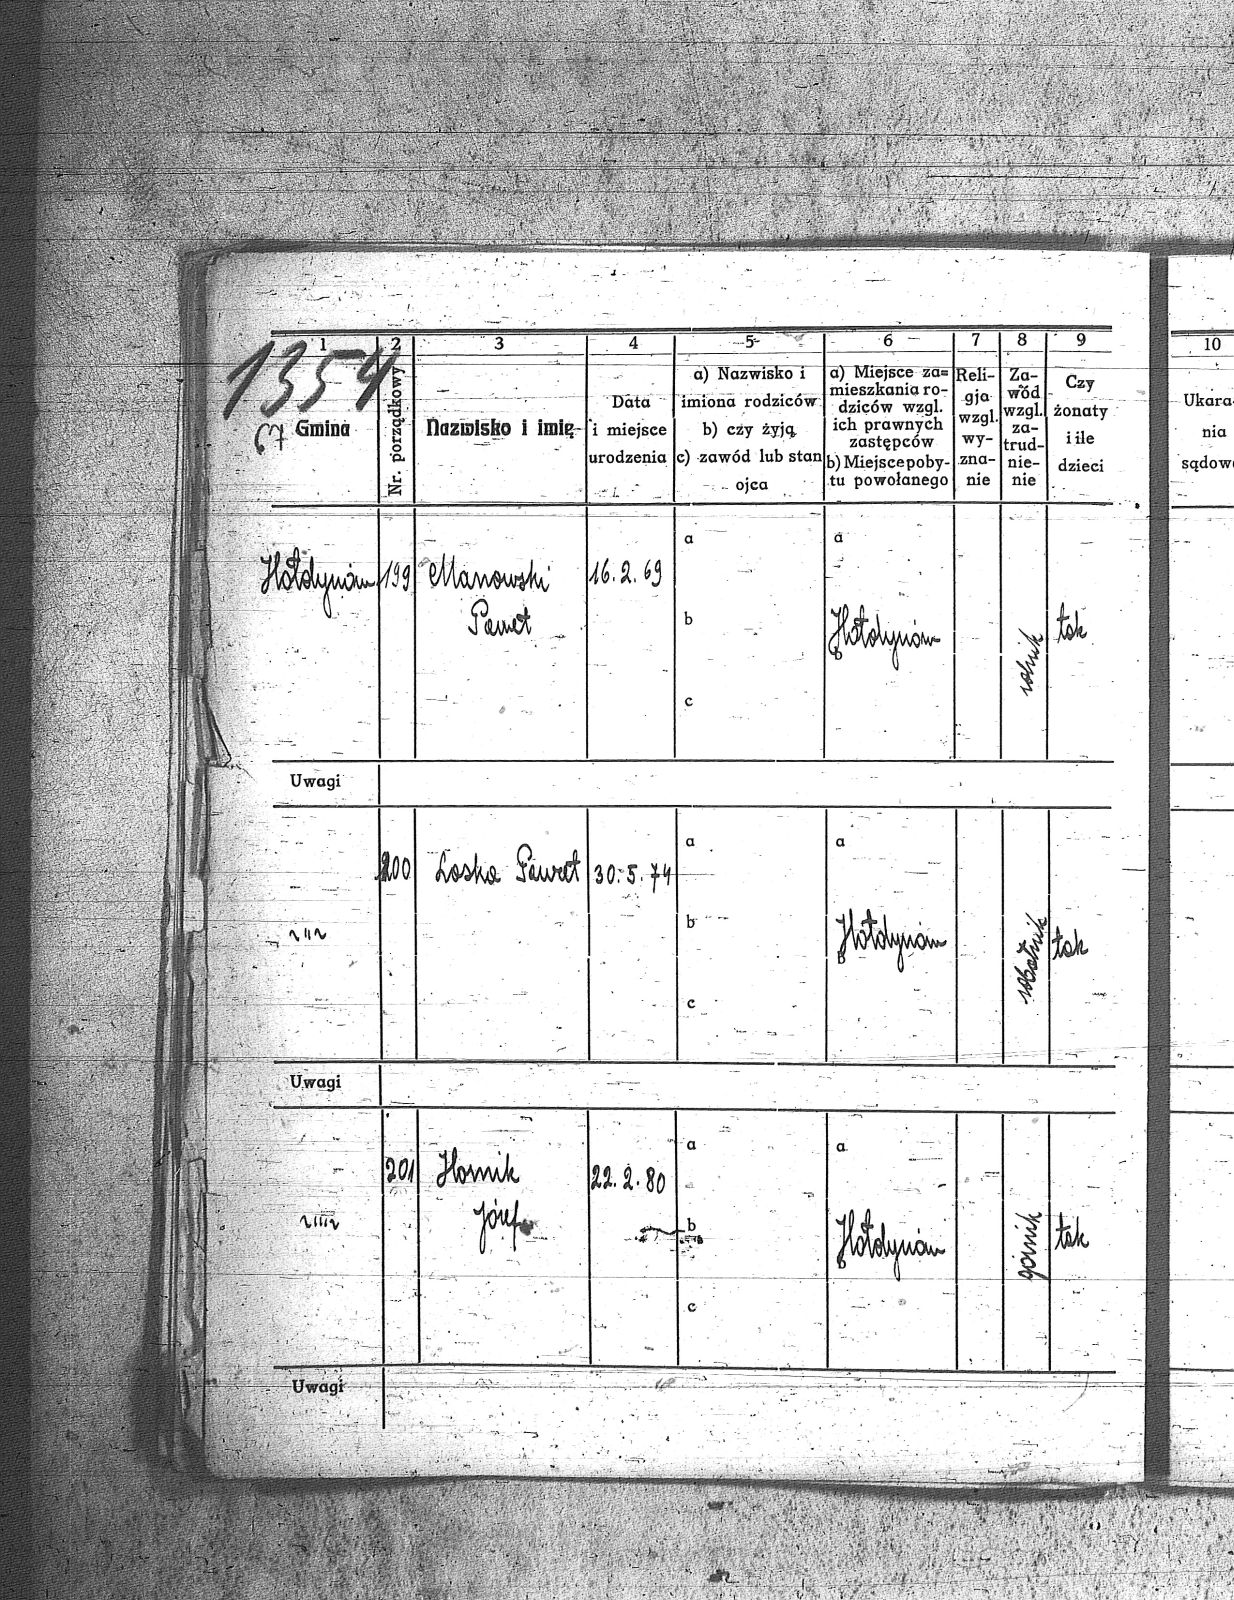 1 2 3 4 5 6 7 8 9 10
1354
67 Gmina
Nr. porządkowy
Nazwisko i imię
Data
i miejsce
urodzenia
a) Nazwisko i
imiona rodziców
b) czy żyją
c) zawód lub stan
ojca
a) Miejsce za=
mieszkania ro-
dziców wzgl.
ich prawnych
zastępców
b) Miejsce poby-
tu powołanego
Reli-
gja
wzgl.
wy-
zna-
nie
Za-
wód
wzgl.
za-
trud-
nie-
nie
Czy
żonaty
i ile
dzieci
Ukara-
nia
sądow
Hołdynów 199 Manowski 16.2.69 a a
Paweł b Hołdynów rolnik tak
b
c
Uwagi
200 Loska Paweł 30.5.74 a a
~"~ b Hołdynów robotnik tak
b
c
Uwagi
201 Hornik 22.2.80 a a
~""~ Józef b Hołdynów górnik tak
b
c
Uwagi